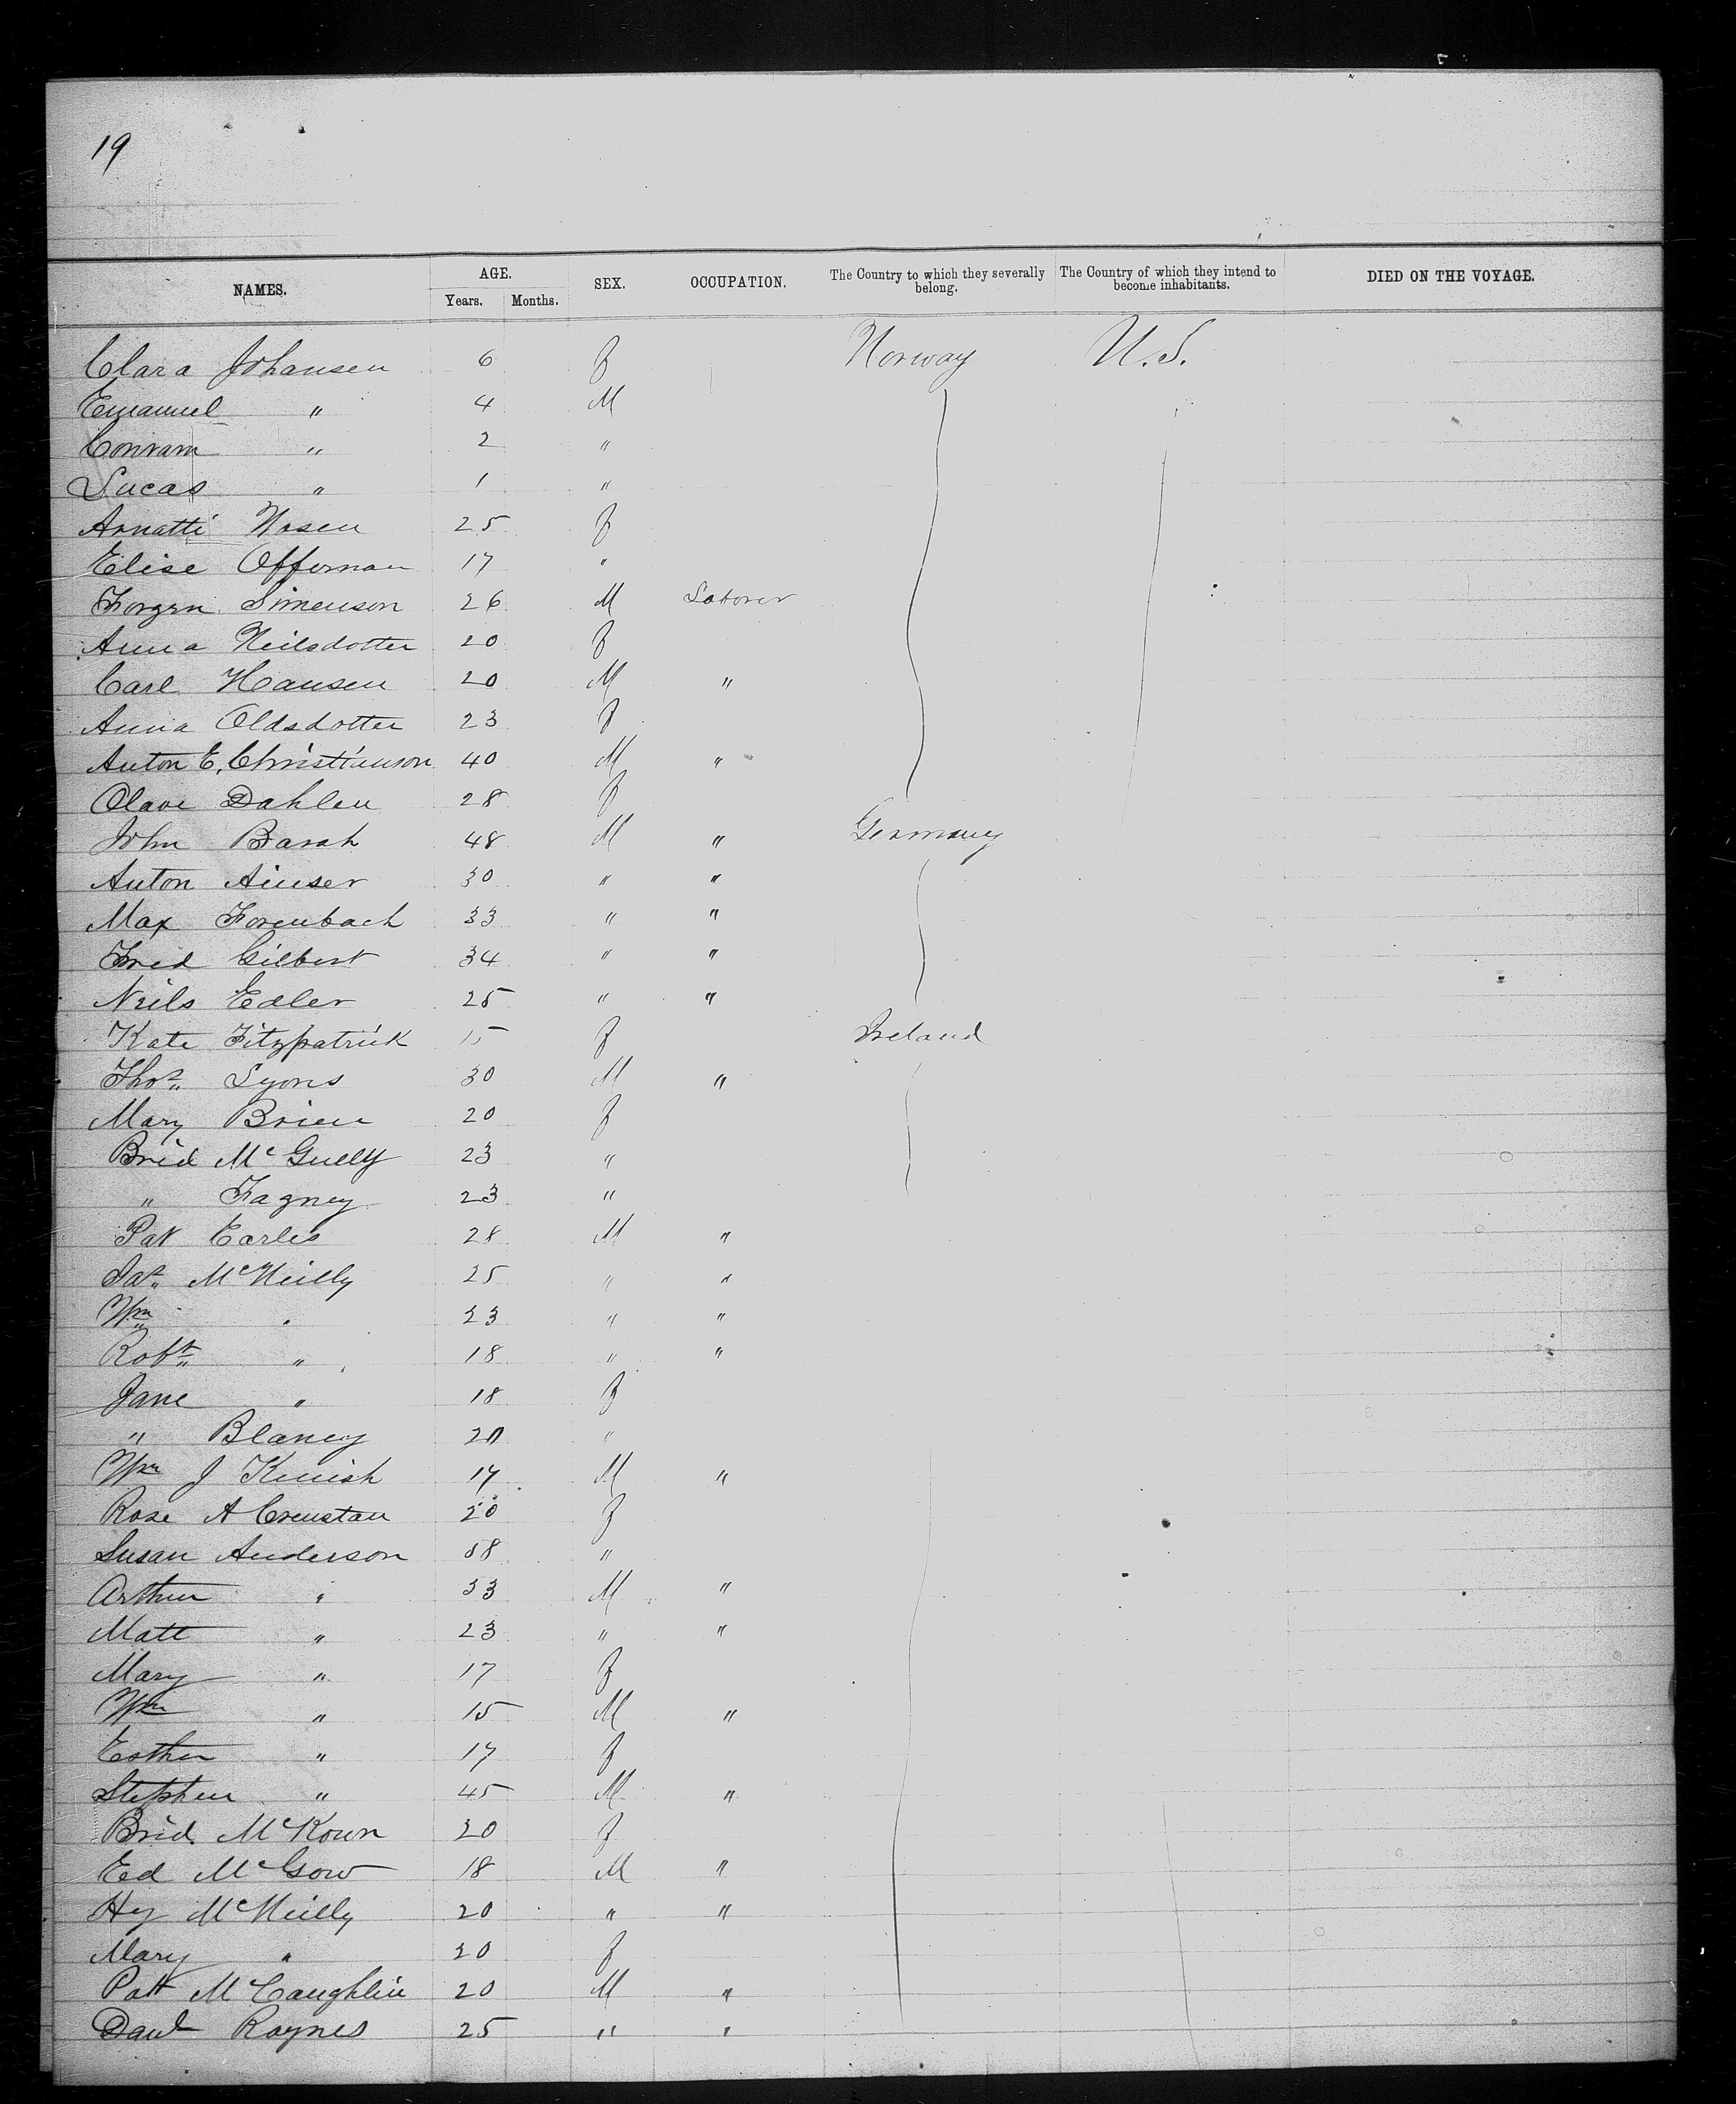 19
NAMES. AGE. Years. Months. SEX. OCCUPATION. The Country to which they severally belong. The Country of which they intend to become inhabitants. DIED ON THE VOYAGE.
Clara Johansen 6 f Norway U.S.
Emanuel " 4 M
Conram " 2 "
Lucas " 1 "
Annatti Nosen 25 f
Elise Offernan 17 "
Simenson 26 M Laborer
Anna Neilsdotter 20 f
Carl Hansen 20 M "
Anna Oldsdotter 23 f
Anton E. Christianson 40 M "
Olave Dahlen 28 f
John Barah 48 M " Germany
Anton Ainser 30 " "
Max Forenbach 33 " "
Fred Gilbert 34 " "
Neils Edler 25 " "
Kate Fitzpatrick 15 f Ireland
Thos. Lyons 30 M "
Mary Brien 20 f
Brid McGuelly 23 "
" Fagney 23 "
Pat Earles 28 M "
Jas. McNeilly 25 " "
Wm " 23 " "
Robt " 18 " "
Jane " 18 f
" Blaney 20 "
Wm J Kinish 17 M "
Rose A Crenstan 20 f
Susan Anderson 58 "
Arthur " 33 M "
Matt " 23 " "
Mary " 17 f
Wm " 15 M "
Esther " 17 f
Stephen " 45 M "
Brid McKown 20 f
Ed McGow 18 M "
Hy McNeilly 20 " "
Mary " 20 f
Patt McCaughlin 20 M "
Danl Raynes 25 " "